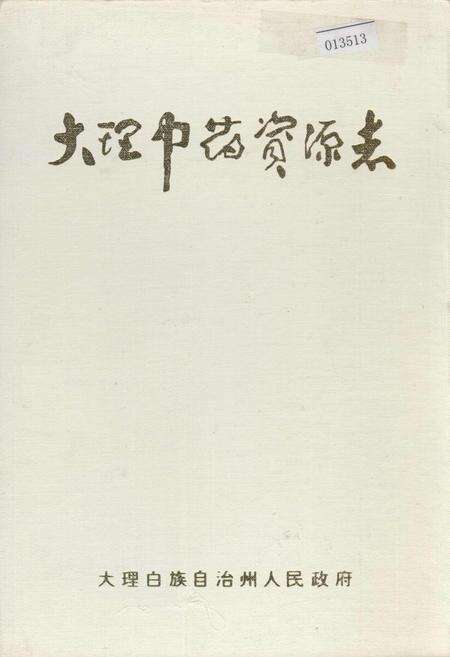 013513
大理中药资源志
大理白族自治州人民政府